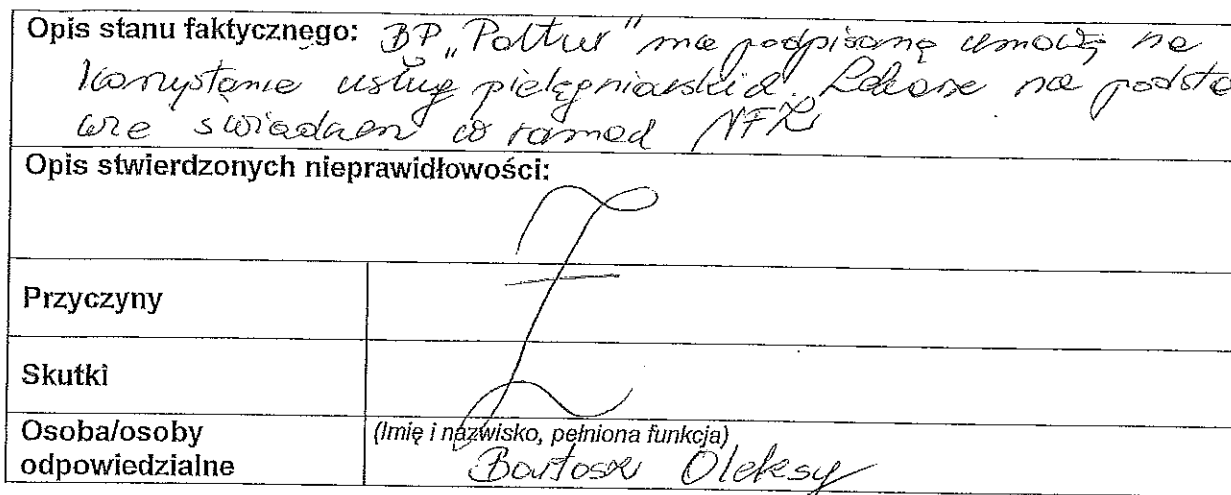 Opis stanu faktycznego: BP „Poltur" ma podpisaną umowę na
korzystanie usług pielęgniarskich. Lekarze na podsta
wie świadczeń w ramach NFZ
Opis stwierdzonych nieprawidłowości:
Przyczyny
Skutki
Osoba/osoby odpowiedzialne
(Imię i nazwisko, pełniona funkcja)
Bartosz Oleksy